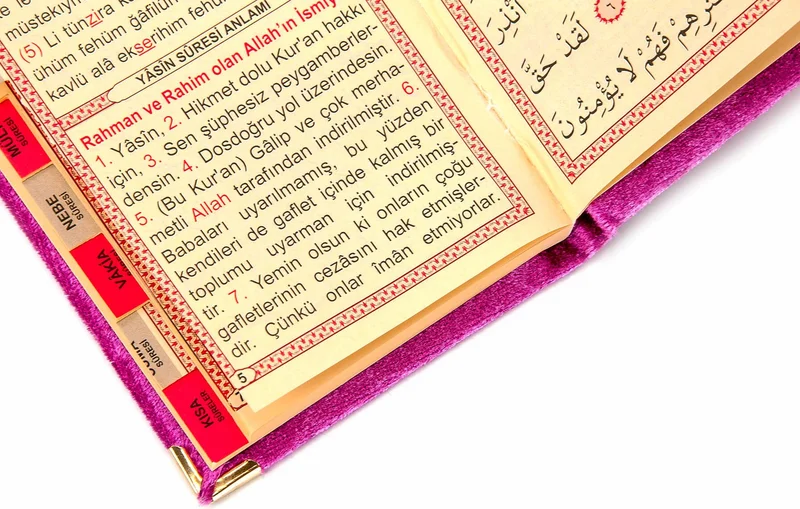 müstekıym
(5) Li tünzira
ühüm fehüm ğâfilûn
kavlü alâ ekserihim fehüm
YÂSÎN SÛRESİ ANLAMI
Rahman ve Rahim olan Allah'ın İsmiy
1. Yâsîn, 2. Hikmet dolu Kur'an hakkı
için, 3. Sen şüphesiz peygamberler-
densin. 4. Dosdoğru yol üzerindesin.
5. (Bu Kur'an) Gâlip ve çok merha-
metli Allah tarafından indirilmiştir. 6.
Babaları uyarılmamış, bu yüzden
kendileri de gaflet içinde kalmış bir
toplumu uyarman için indirilmiş-
tir. 7. Yemin olsun ki onların çoğu
gafletlerinin cezâsını hak etmişler-
dir. Çünkü onlar îmân etmiyorlar.
5
لَقَدْ حَقَّ
فَهُمْ لَا يُؤْمِنُونَ
٦
SÛRESİ
NEBE
SÛRESİ
VÂKIA
SÛRESİ
KISA
SÛRELER